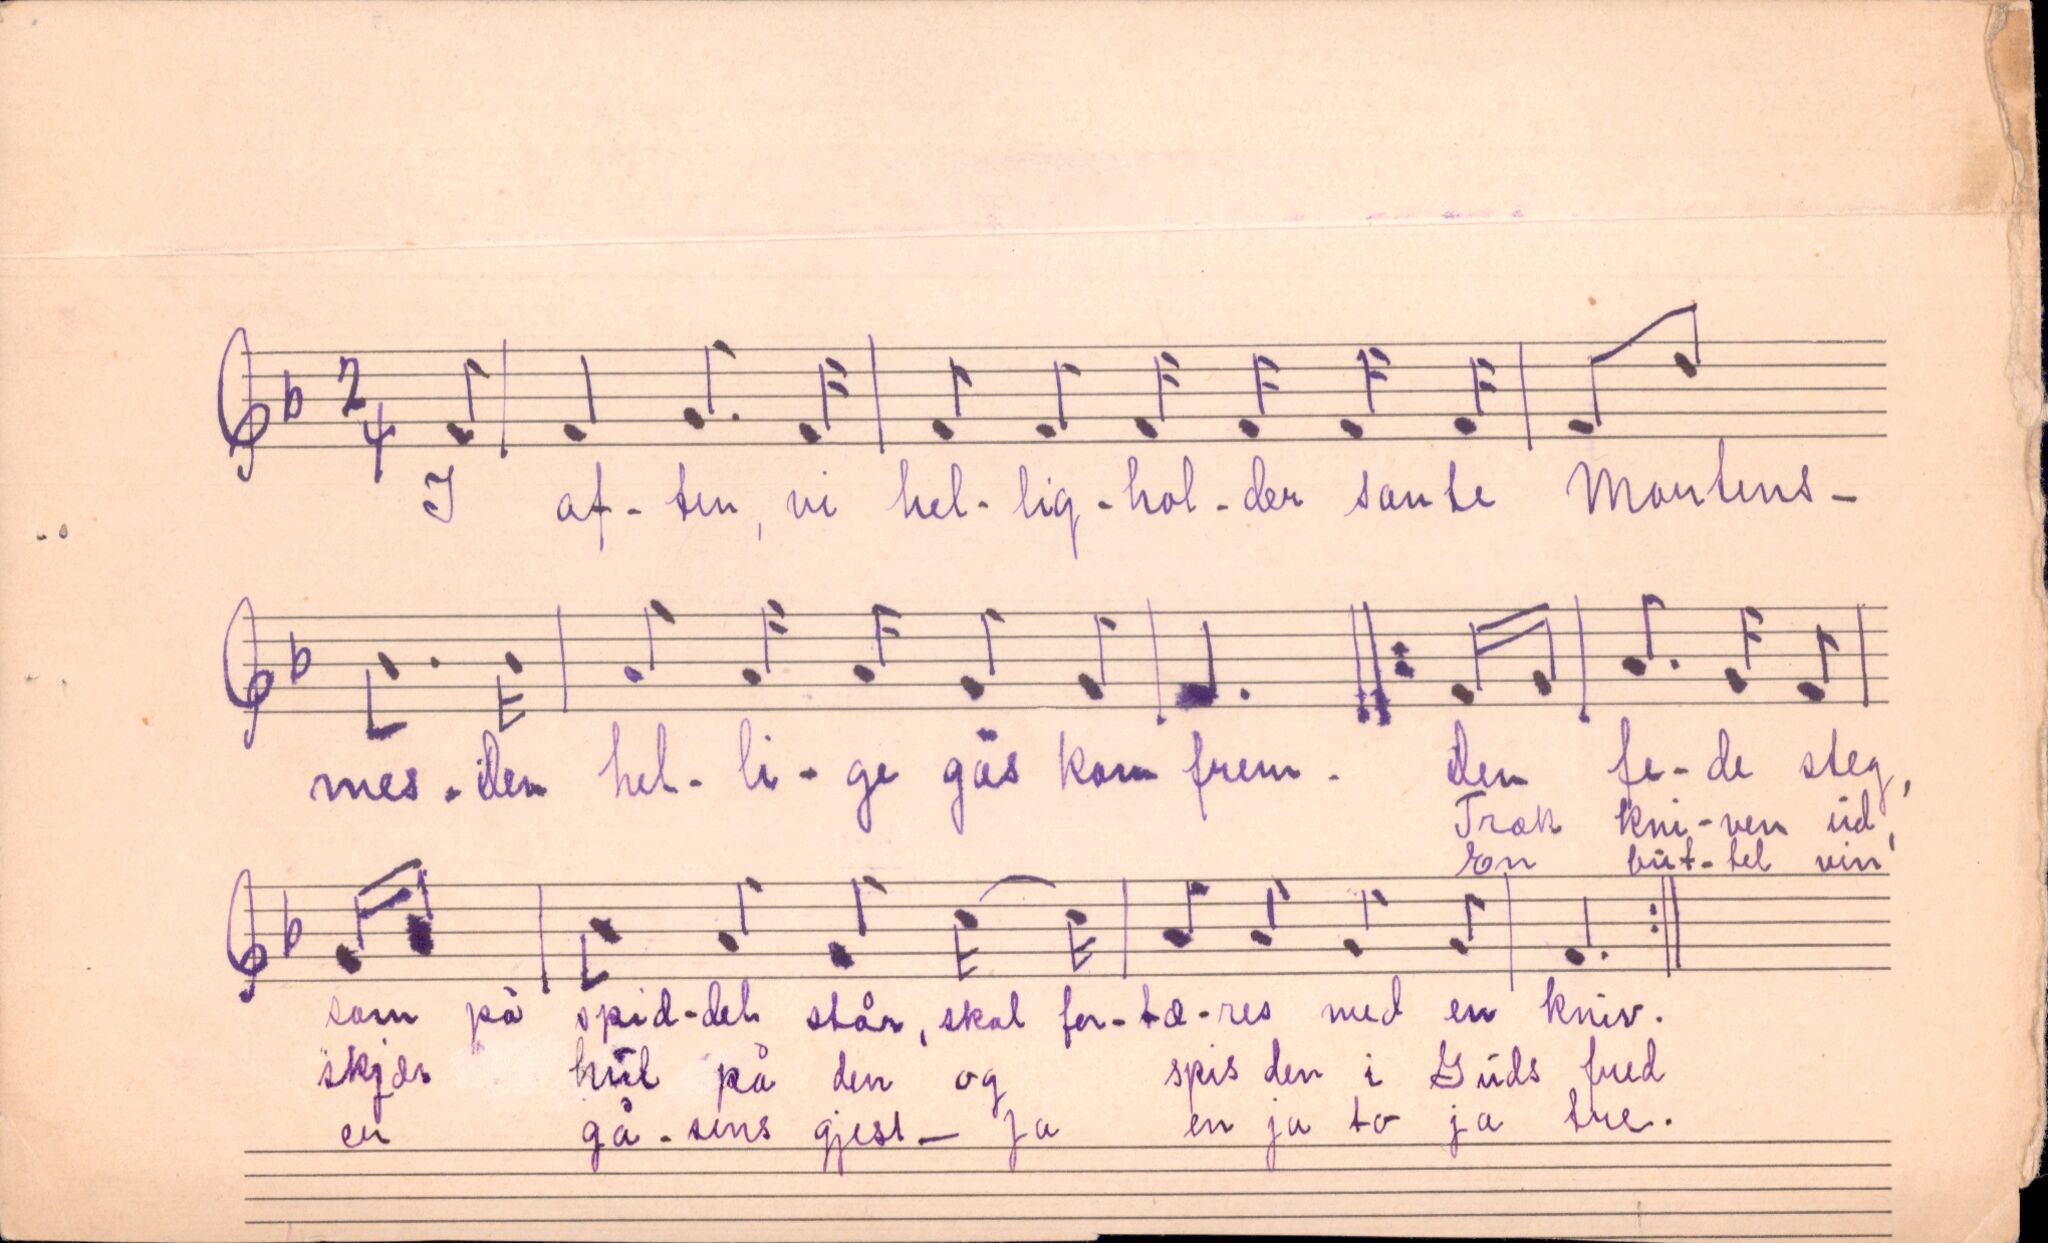 2
4
I af-ten, vi hel-lig-hol-der sante Mortens-
mes. Den hel-li-ge gås kom frem. Den fe-de steg,
Træk kni-ven ud,
En but-tel vin
som på spid-det står, skal for-tæ-res med en kniv.
skjær hul på den og spis den i Guds fred
er gå-sens gjest - Ja en ja to ja tre.